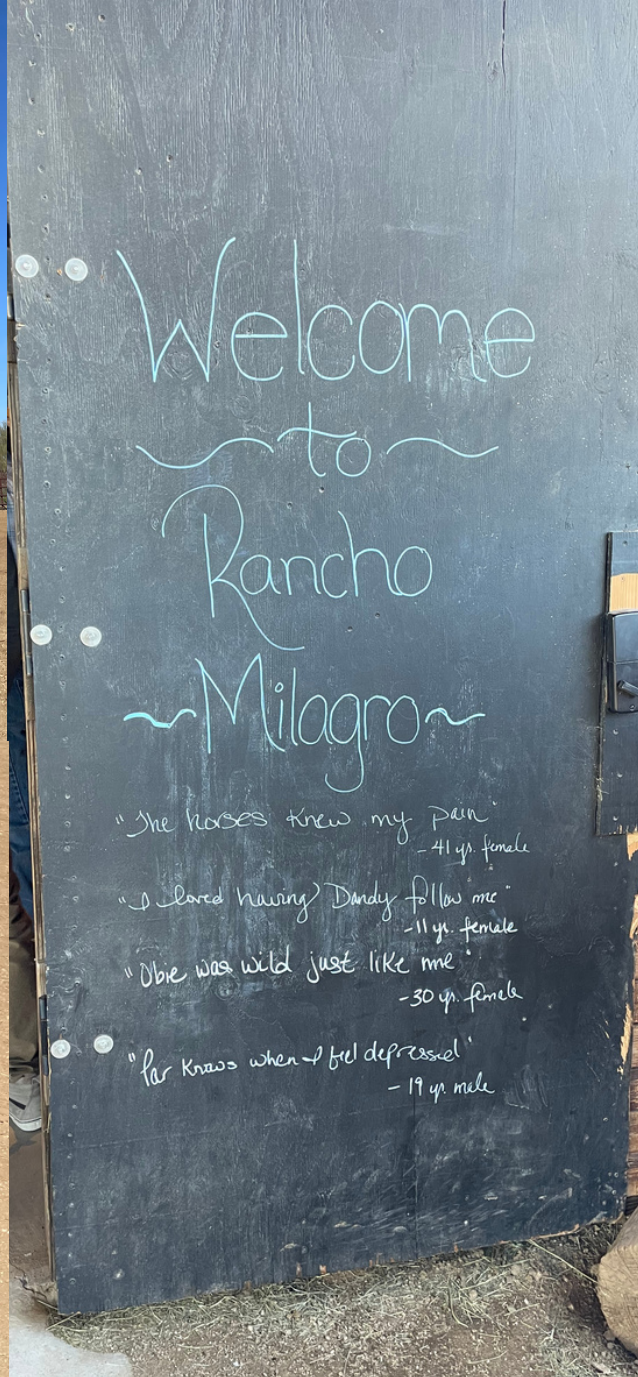 Welcome
~ to ~
Rancho
~Milagro~
"The horses knew my pain"
- 41 yr. female
"I loved having Dandy follow me"
- 11 yr. female
"Obie was wild just like me"
- 30 yr. female
"Par knows when I feel depressed"
- 19 yr. male